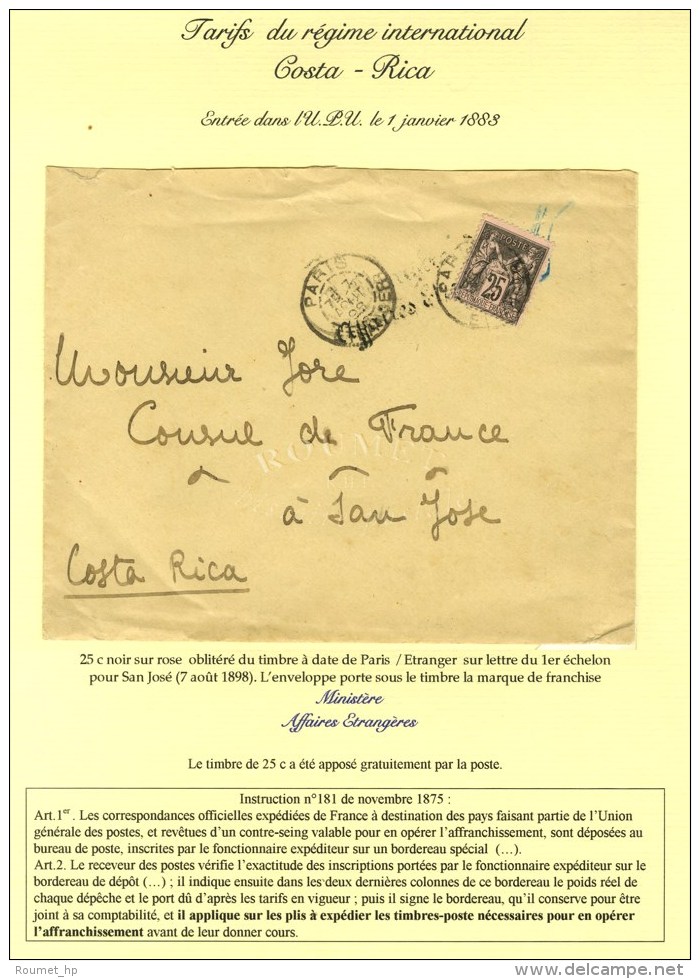 Tarifs du régime international
Costa - Rica
Entrée dans l'U.P.U. le 1 janvier 1883
PARIS
POSTE
25
Monsieur Jore
Consul de France
à San Jose
Costa Rica
ROUMET
25 c noir sur rose oblitéré du timbre à date de Paris / Etranger sur lettre du 1er échelon
pour San José (7 août 1898). L'enveloppe porte sous le timbre la marque de franchise
Ministère
Affaires Etrangères
Le timbre de 25 c a été apposé gratuitement par la poste.
Instruction n°181 de novembre 1875 :
Art.1er . Les correspondances officielles expédiées de France à destination des pays faisant partie de l'Union
générale des postes, et revêtues d'un contre-seing valable pour en opérer l'affranchissement, sont déposées au
bureau de poste, inscrites par le fonctionnaire expéditeur sur un bordereau spécial (…).
Art.2. Le receveur des postes vérifie l'exactitude des inscriptions portées par le fonctionnaire expéditeur sur le
bordereau de dépôt (…) ; il indique ensuite dans les deux dernières colonnes de ce bordereau le poids réel de
chaque dépêche et le port dû d'après les tarifs en vigueur ; puis il signe le bordereau, qu'il conserve pour être
joint à sa comptabilité, et il applique sur les plis à expédier les timbres-poste nécessaires pour en opérer
l'affranchissement avant de leur donner cours.
Roumet_hp
delcampe.net